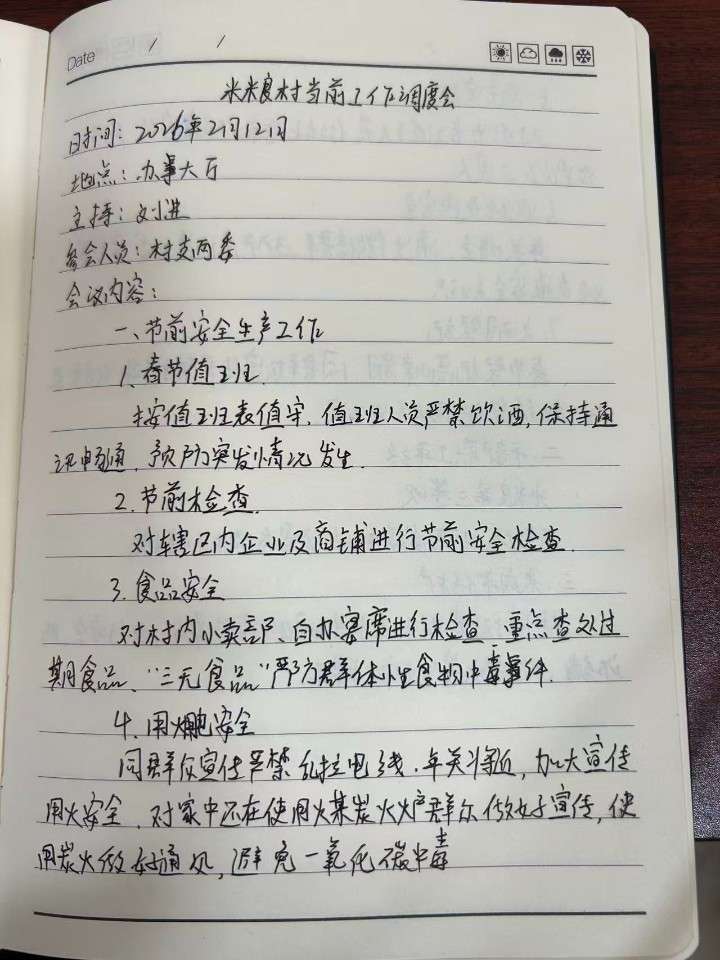 Date / /
米粮村当前工作调度会
时间：2026年2月12日
地点：办事大厅
主持：刘进
参会人员：村支两委
会议内容：
一、节前安全生产工作
1、春节值班.
按值班表值守，值班人员严禁饮酒，保持通
讯畅通，预防突发情况发生.
2.节前检查.
对辖区内企业及商铺进行节前安全检查.
3.食品安全
对村内小卖部、自办宴席进行检查，重点查处过
期食品、“三无食品”严防群体性食物中毒事件.
4.用火用电安全
同群众宣传严禁乱拉电线.年关将近，加大宣传
用火安全，对家中还在使用煤炭火户群众做好宣传，使
用炭火做好通风，避免一氧化碳中毒